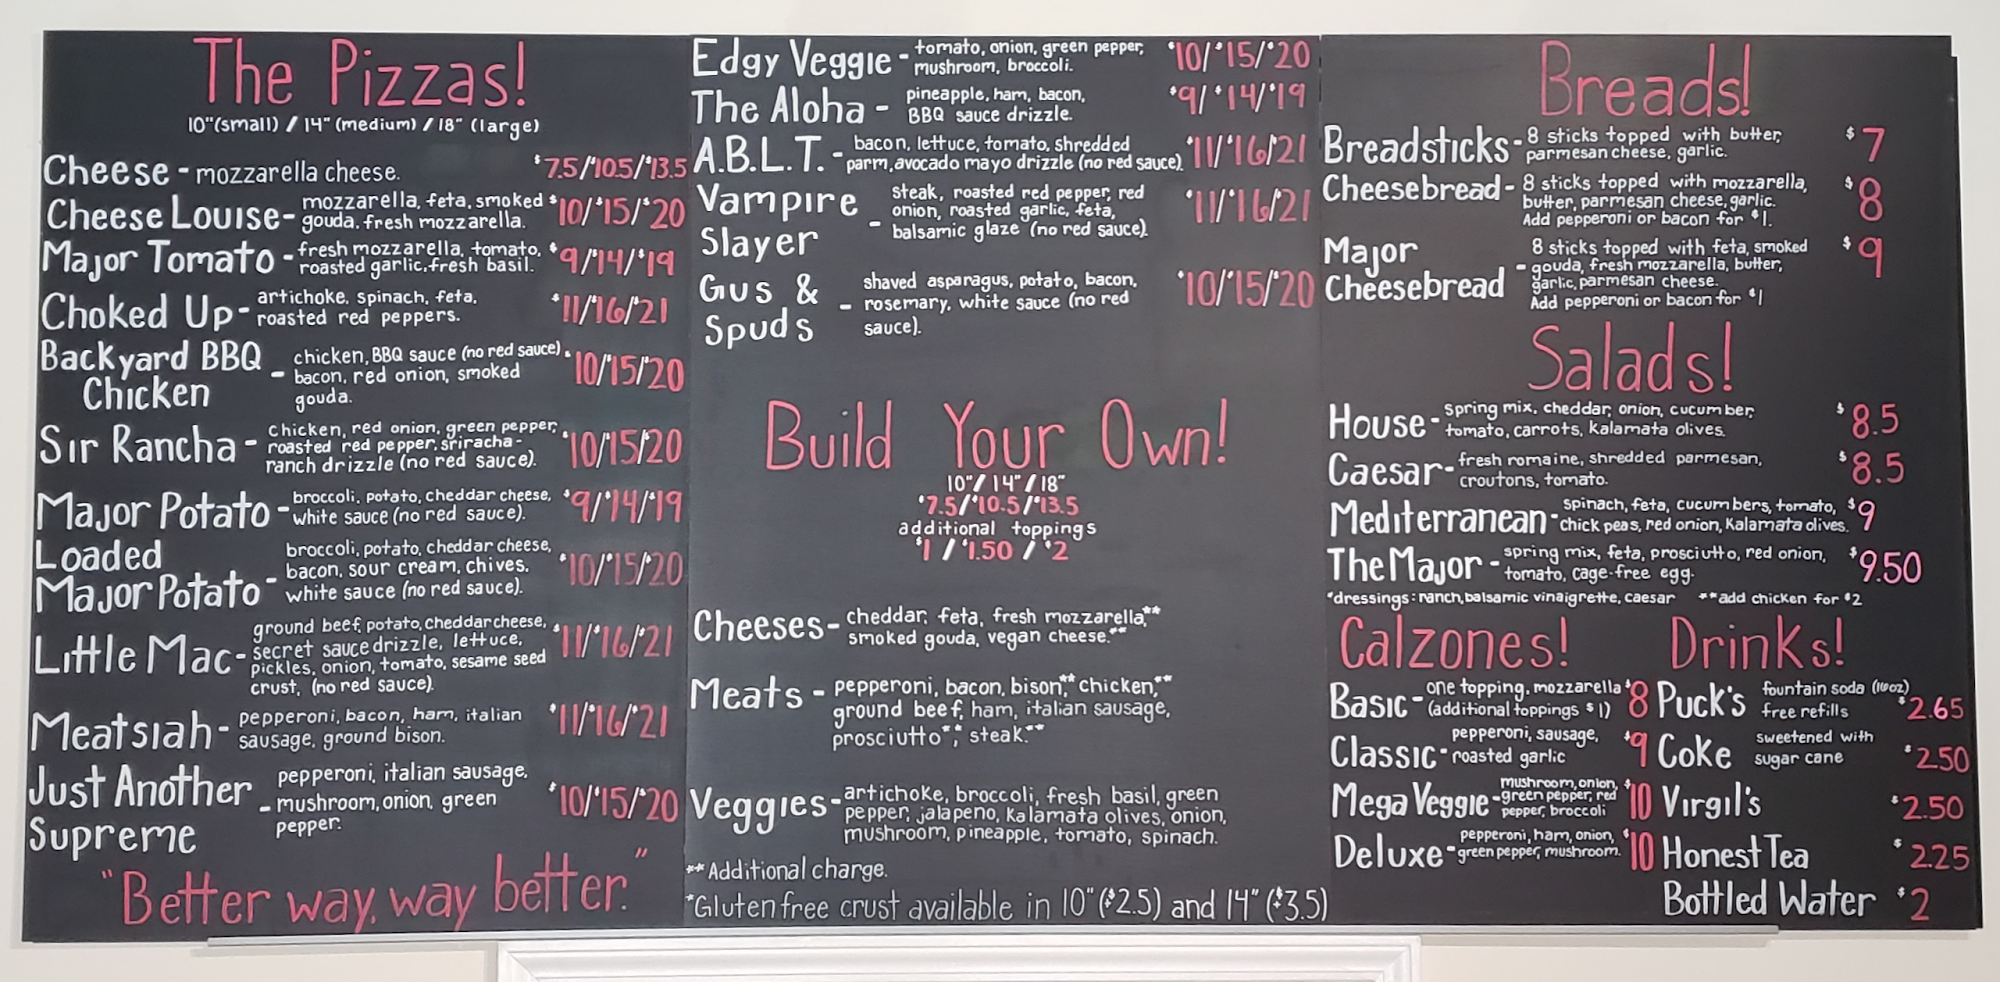 The Pizzas!
10"(small) / 14" (medium) / 18" (large)
Cheese - mozzarella cheese. $7.5/$10.5/$13.5
Cheese Louise - mozzarella, feta, smoked $10/$15/$20
gouda, fresh mozzarella.
Major Tomato - fresh mozzarella, tomato, $9/$14/$19
roasted garlic, fresh basil.
Choked Up - artichoke, spinach, feta, $11/$16/$21
roasted red peppers.
Backyard BBQ Chicken - chicken, BBQ sauce (no red sauce) $10/$15/$20
bacon, red onion, smoked
gouda.
Sir Rancha - chicken, red onion, green pepper, $10/$15/$20
roasted red pepper, sriracha-
ranch drizzle (no red sauce).
Major Potato - broccoli, potato, cheddar cheese, $9/$14/$19
white sauce (no red sauce).
Loaded Major Potato - broccoli, potato, cheddar cheese, $10/$15/$20
bacon, sour cream, chives.
white sauce (no red sauce).
Little Mac - ground beef, potato, cheddar cheese, $11/$16/$21
secret sauce drizzle, lettuce,
pickles, onion, tomato, sesame seed
crust, (no red sauce).
Meatsiah - pepperoni, bacon, ham, italian $11/$16/$21
sausage, ground bison.
Just Another Supreme - pepperoni, italian sausage, $10/$15/$20
mushroom, onion, green
pepper.
"Better way, way better."
Edgy Veggie - tomato, onion, green pepper, $10/$15/$20
mushroom, broccoli.
The Aloha - pineapple, ham, bacon, $9/$14/$19
BBQ sauce drizzle.
A.B.L.T. - bacon, lettuce, tomato, shredded $11/$16/$21
parm, avocado mayo drizzle (no red sauce).
Vampire Slayer - steak, roasted red pepper, red $11/$16/$21
onion, roasted garlic, feta,
balsamic glaze (no red sauce).
Gus & Spuds - shaved asparagus, potato, bacon, $10/$15/$20
rosemary, white sauce (no red
sauce).
Build Your Own!
10"/ 14" / 18"
$7.5/$10.5/$13.5
additional toppings
$1 / $1.50 / $2
Cheeses - cheddar, feta, fresh mozzarella,**
smoked gouda, vegan cheese.**
Meats - pepperoni, bacon, bison,** chicken,**
ground beef, ham, italian sausage,
prosciutto**, steak.**
Veggies - artichoke, broccoli, fresh basil, green
pepper, jalapeno, kalamata olives, onion,
mushroom, pineapple, tomato, spinach.
**Additional charge.
*Gluten free crust available in 10" ($2.5) and 14" ($3.5)
Breads!
Breadsticks - 8 sticks topped with butter, $7
parmesan cheese, garlic.
Cheesebread - 8 sticks topped with mozzarella, $8
butter, parmesan cheese, garlic.
Add pepperoni or bacon for $1.
Major Cheesebread - 8 sticks topped with feta, smoked $9
gouda, fresh mozzarella, butter,
garlic, parmesan cheese.
Add pepperoni or bacon for $1
Salads!
House - spring mix, cheddar, onion, cucumber, $8.5
tomato, carrots, kalamata olives.
Caesar - fresh romaine, shredded parmesan, $8.5
croutons, tomato.
Mediterranean - spinach, feta, cucumbers, tomato, $9
chick peas, red onion, kalamata olives.
The Major - spring mix, feta, prosciutto, red onion, $9.50
tomato, cage-free egg.
*dressings: ranch, balsamic vinaigrette, caesar **add chicken for $2
Calzones!
Basic - one topping, mozzarella $8
(additional toppings $1)
Classic - pepperoni, sausage, $9
roasted garlic
Mega Veggie - mushroom, onion, $10
green pepper, red
pepper, broccoli
Deluxe - pepperoni, ham, onion, $10
green pepper, mushroom.
Drinks!
Puck's fountain soda (16oz) $2.65
free refills
Coke sweetened with $2.50
sugar cane
Virgil's $2.50
Honest Tea $2.25
Bottled Water $2